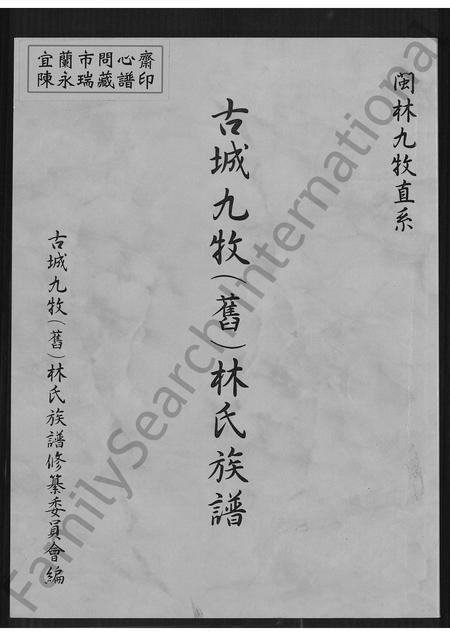 宜蘭市問心齋
陳永瑞藏譜印
閩林九牧直系
古城九牧(舊)林氏族譜
古城九牧(舊)林氏族譜修纂委員會編
FamilySearch International